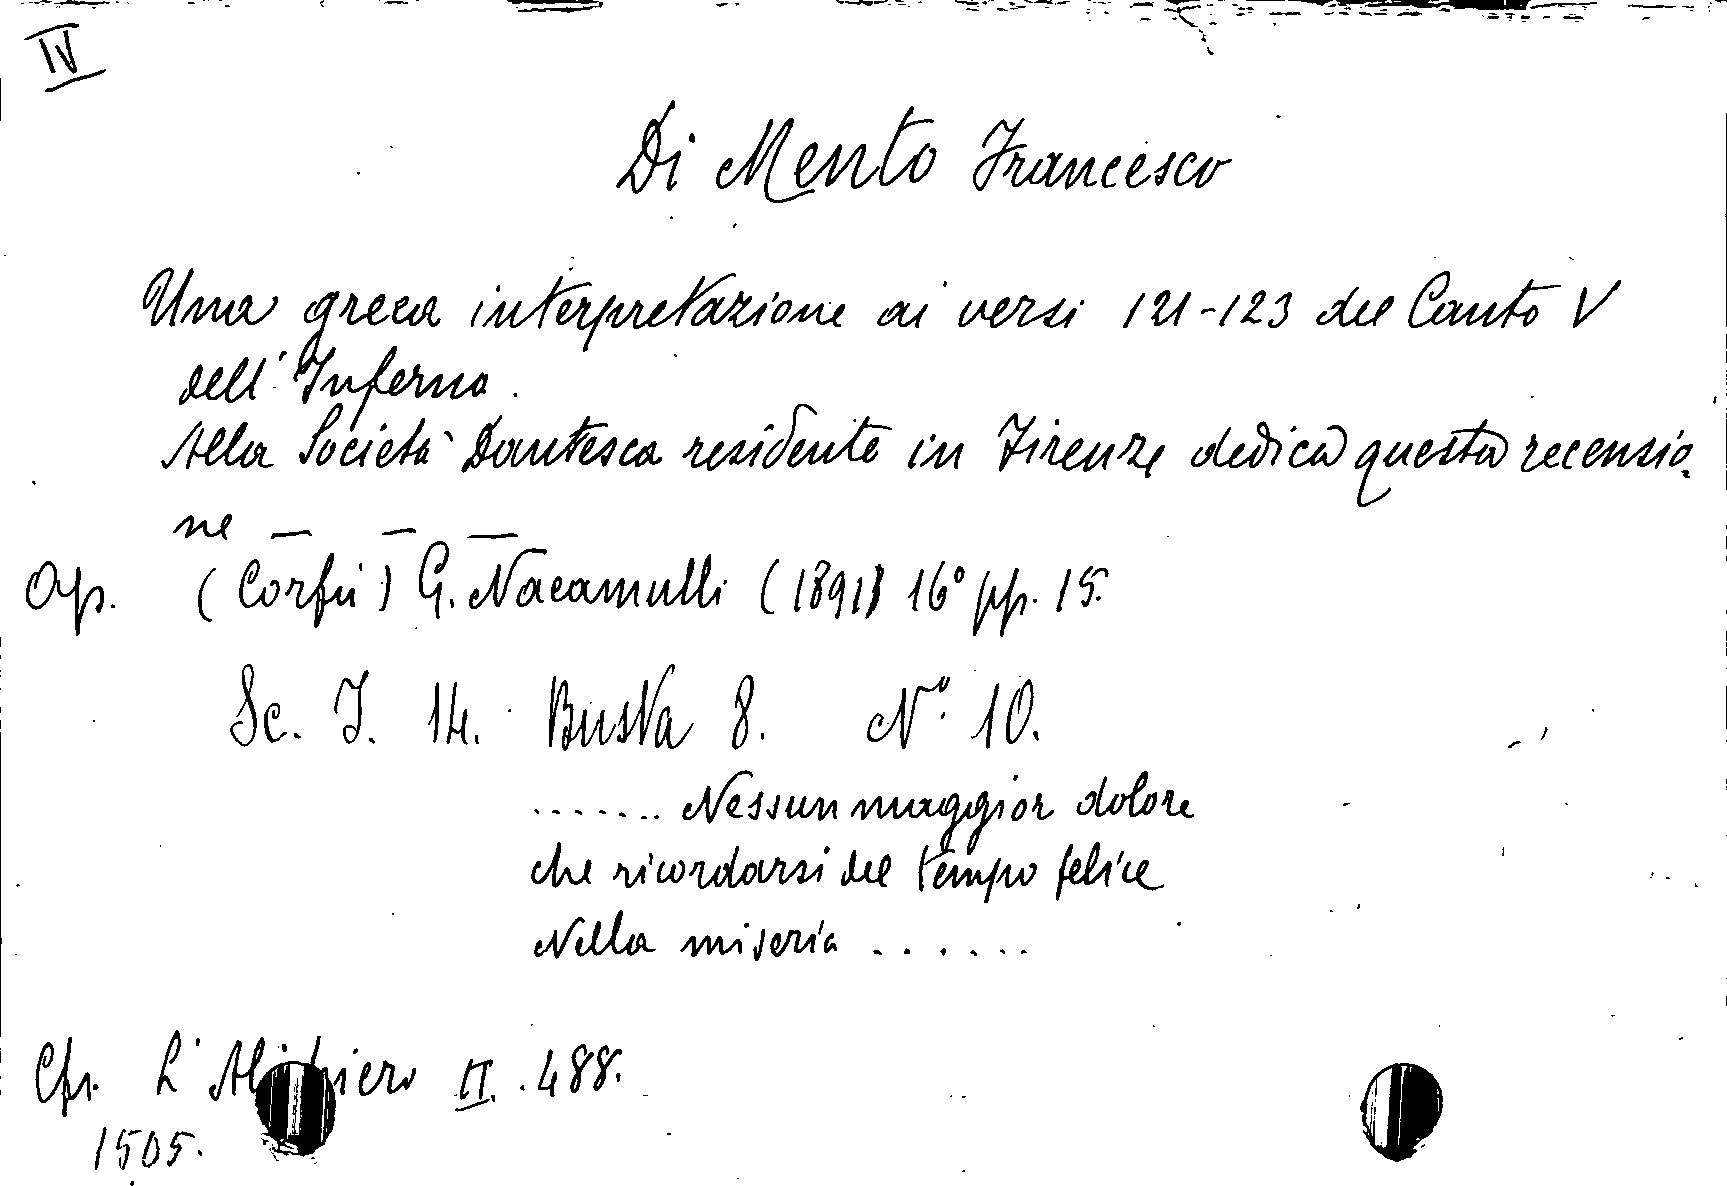 IV
Di Mento Francesco
Una greca interpretazione ai versi 121-123 del Canto V
dell'Inferno.
Alla Società Dantesca residente in Firenze dedica questa recensio-
ne — — —
Op. (Corfù) G. Nacamulli (1891) 16° pp. 15.
Sc. I. 14. Busta 8. N° 10.
....... Nessun maggior dolore
che ricordarsi del tempo felice
Nella miseria ......
Cfr. L'Alighiero II. 488.
1505.